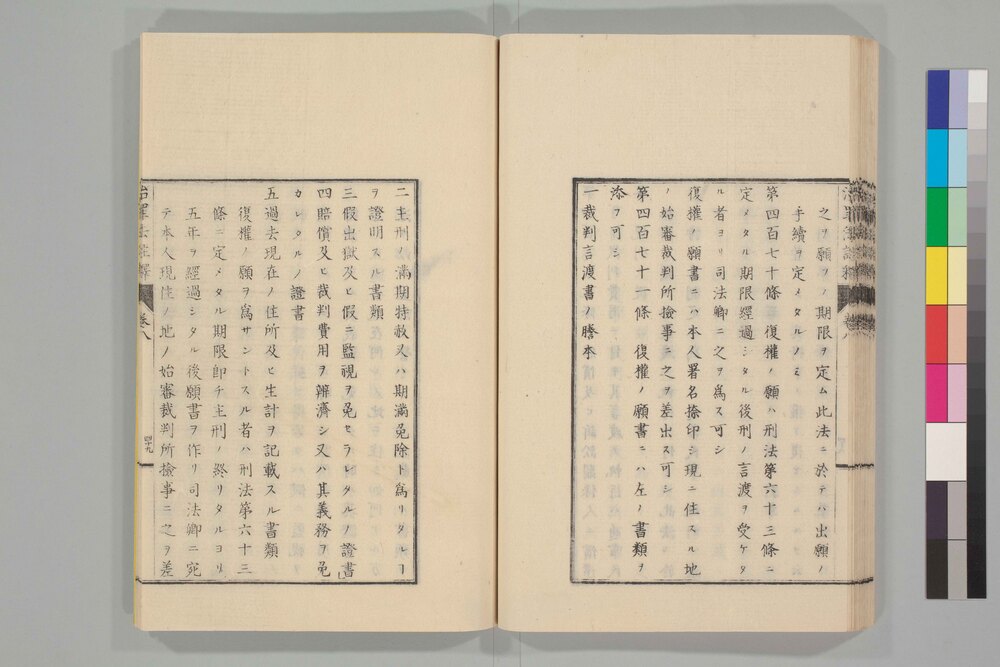 之ヲ願フノ期限ヲ定ム此法ニ於テハ出願ノ
手續ヲ定メタルノミ
第四百七十條復權ノ願ハ刑法第六十三條ニ
定メタル期限經過シタル後刑ノ言渡ヲ受ケタ
ル者ヨリ司法卿ニ之ヲ爲ス可シ
復權ノ願書ニハ本人署名捺印シ現ニ住スル地
ノ始審裁判所撿事ニ之ヲ差出ス可シ
第四百七十一條復權ノ願書ニハ左ノ書類ヲ
添フ可シ
一裁判言渡書ノ謄本
二主刑ノ滿期特赦又ハ期滿免除ト爲リタルヿ
ヲ證明スル書類
三假出獄及ヒ假ニ監視ヲ免セラレタルノ證書
四賠償及ヒ裁判費用ヲ辨濟シ又ハ其義務ヲ免
カレタルノ證書
五過去現在ノ住所及ヒ生計ヲ記載スル書類
復權ノ願ヲ爲サントスル者ハ刑法第六十三
條ニ定メタル期限即チ主刑ノ終リタルヨリ
五年ヲ經過シタル後願書ヲ作リ司法卿ニ宛
テ本人現住ノ地ノ始審裁判所撿事ニ之ヲ差
治罪法註釋
卷八
四十九